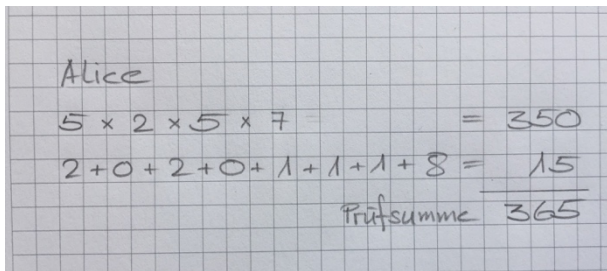 Alice
5 × 2 × 5 × 7 = 350
2+0+2+0+1+1+1+8= 15
Prüfsumme 365